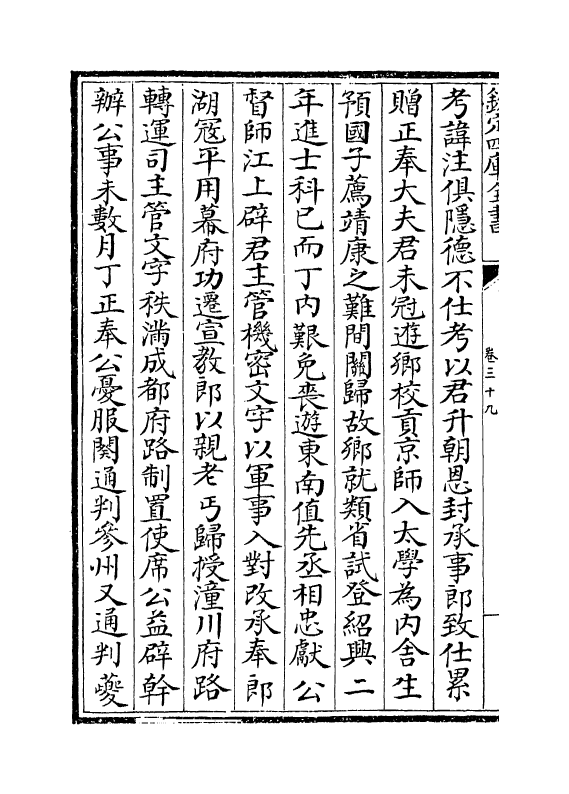 欽定四庫全書
卷三十九
考諱汪俱隱德不仕考以君升朝恩封承事郎致仕累
贈正奉大夫君未冠遊鄉校貢京師入太學為内舍生
預國子薦靖康之難間關歸故鄉就類省試登紹興二
年進士科已而丁内艱免喪遊東南值先丞相忠獻公
督師江上辟君主管機密文字以軍事入對改承奉郎
湖冦平用幕府功遷宣教郎以親老丐歸授潼川府路
轉運司主管文字秩滿成都府路制置使席公益辟幹
辦公事未數月丁正奉公憂服闋通判參州又通判夔